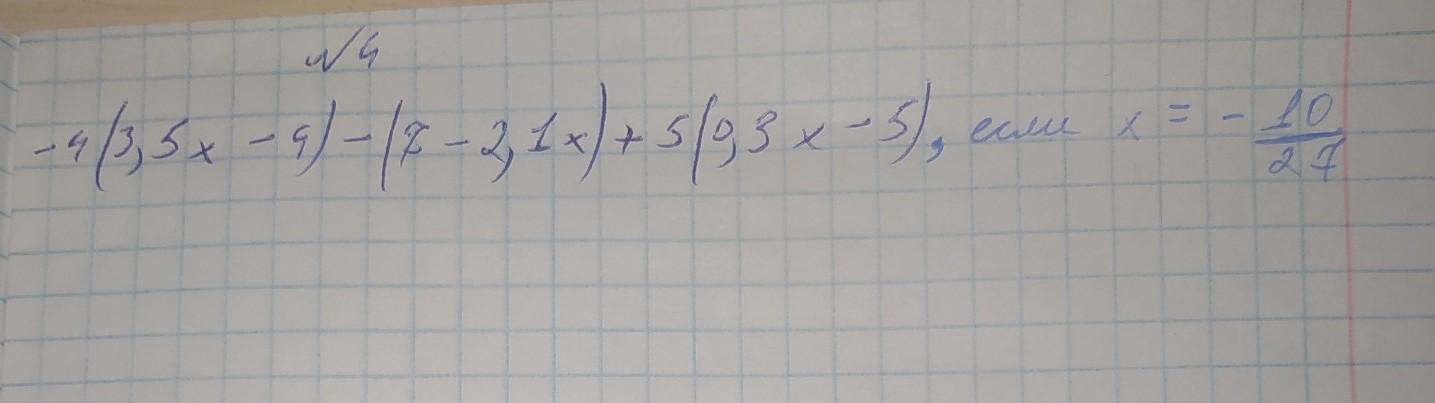 №4
-4(3,5x - 4) - (7 - 2,1x) + 5(0,3x - 5), если x = - 10/27